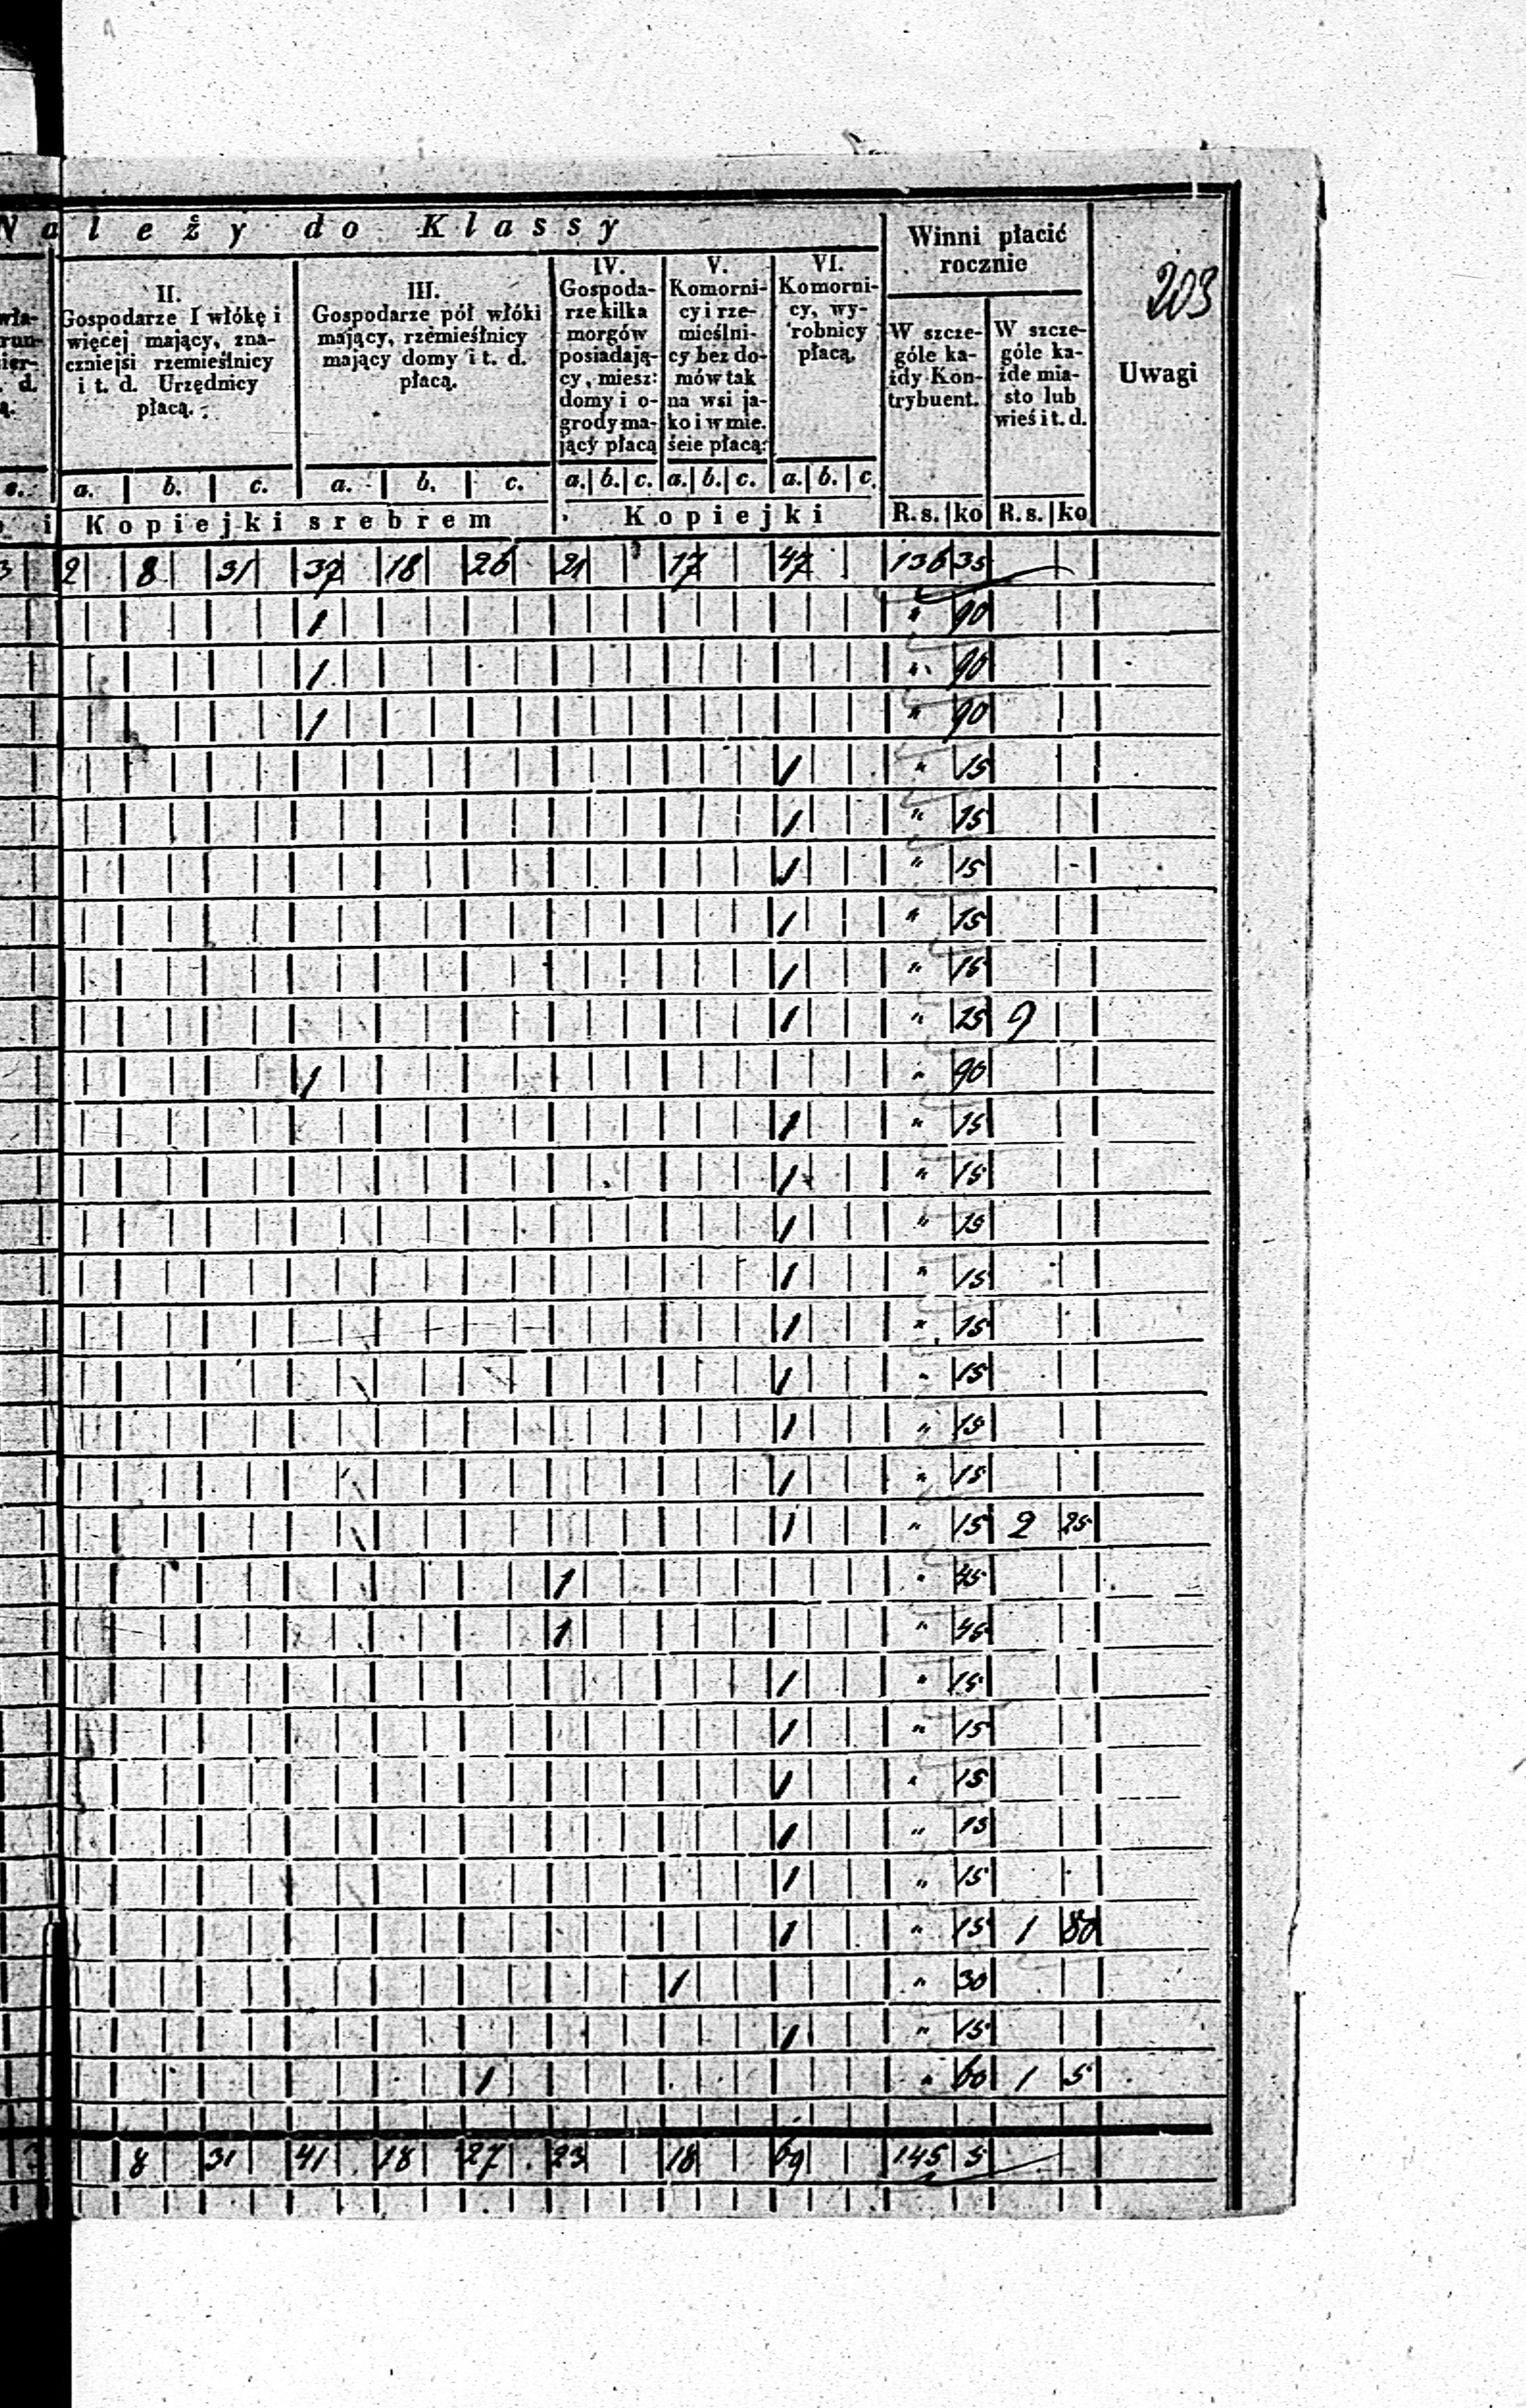 Należy do Klassy
Winni płacić
rocznie
203
Uwagi
II.
Gospodarze I włókę i
więcej mający, zna-
czniejsi rzemieślnicy
i t. d. Urzędnicy
płacą.
III.
Gospodarze pół włóki
mający, rzemieślnicy
mający domy i t. d.
płacą.
IV.
Gospoda-
rze kilka
morgów
posiadają-
cy, miesz:
domy i o-
grody ma-
jący płacą
V.
Komorni-
cy i rze-
mieślni-
cy bez do-
mów tak
na wsi ja-
ko i w mie.
ście płacą:
VI.
Komorni-
cy, wy-
robnicy
płacą.
W szcze-
góle ka-
żdy Kon-
trybuent.
W szcze-
góle ka-
żde mia-
sto lub
wieś i t. d.
a. b. c. a. b. c. a. b. c. a. b. c. a. b. c.
i Kopiejki srebrem Kopiejki R.s. ko R.s. ko
2 8 31 37 18 26 21 17 47 136 35
1 " 90
1 " 90
1 " 90
1 " 15
1 " 15
1 " 15
1 " 15
1 " 15
1 " 15 9
1 " 90
1 " 15
1 " 15
1 " 15
1 " 15
1 " 15
1 " 15
1 " 15
1 " 15
1 " 15 2 25
1 " 45
1 " 45
1 " 15
1 " 15
1 " 15
1 " 15
1 " 15
1 " 15 1 80
1 " 30
1 " 15
1 " 60 1 5
8 31 41 18 27 23 18 69 145 5